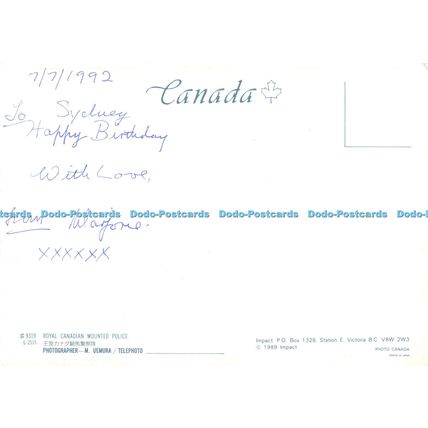 7/7/1992
Canada
To Sydney
Happy Birthday
With Love,
from Marjorie.
Dodo-Postcards Dodo-Postcards Dodo-Postcards Dodo-Postcards Dodo-Postcards
XXXXXX
ROYAL CANADIAN MOUNTED POLICE
王室カナダ騎馬警察隊
PHOTOGRAPHER—M. UEMURA / TELEPHOTO
Impact P.O. Box 1328, Station E, Victoria B.C. V8W 2W3
© 1989 Impact
PHOTO CANADA